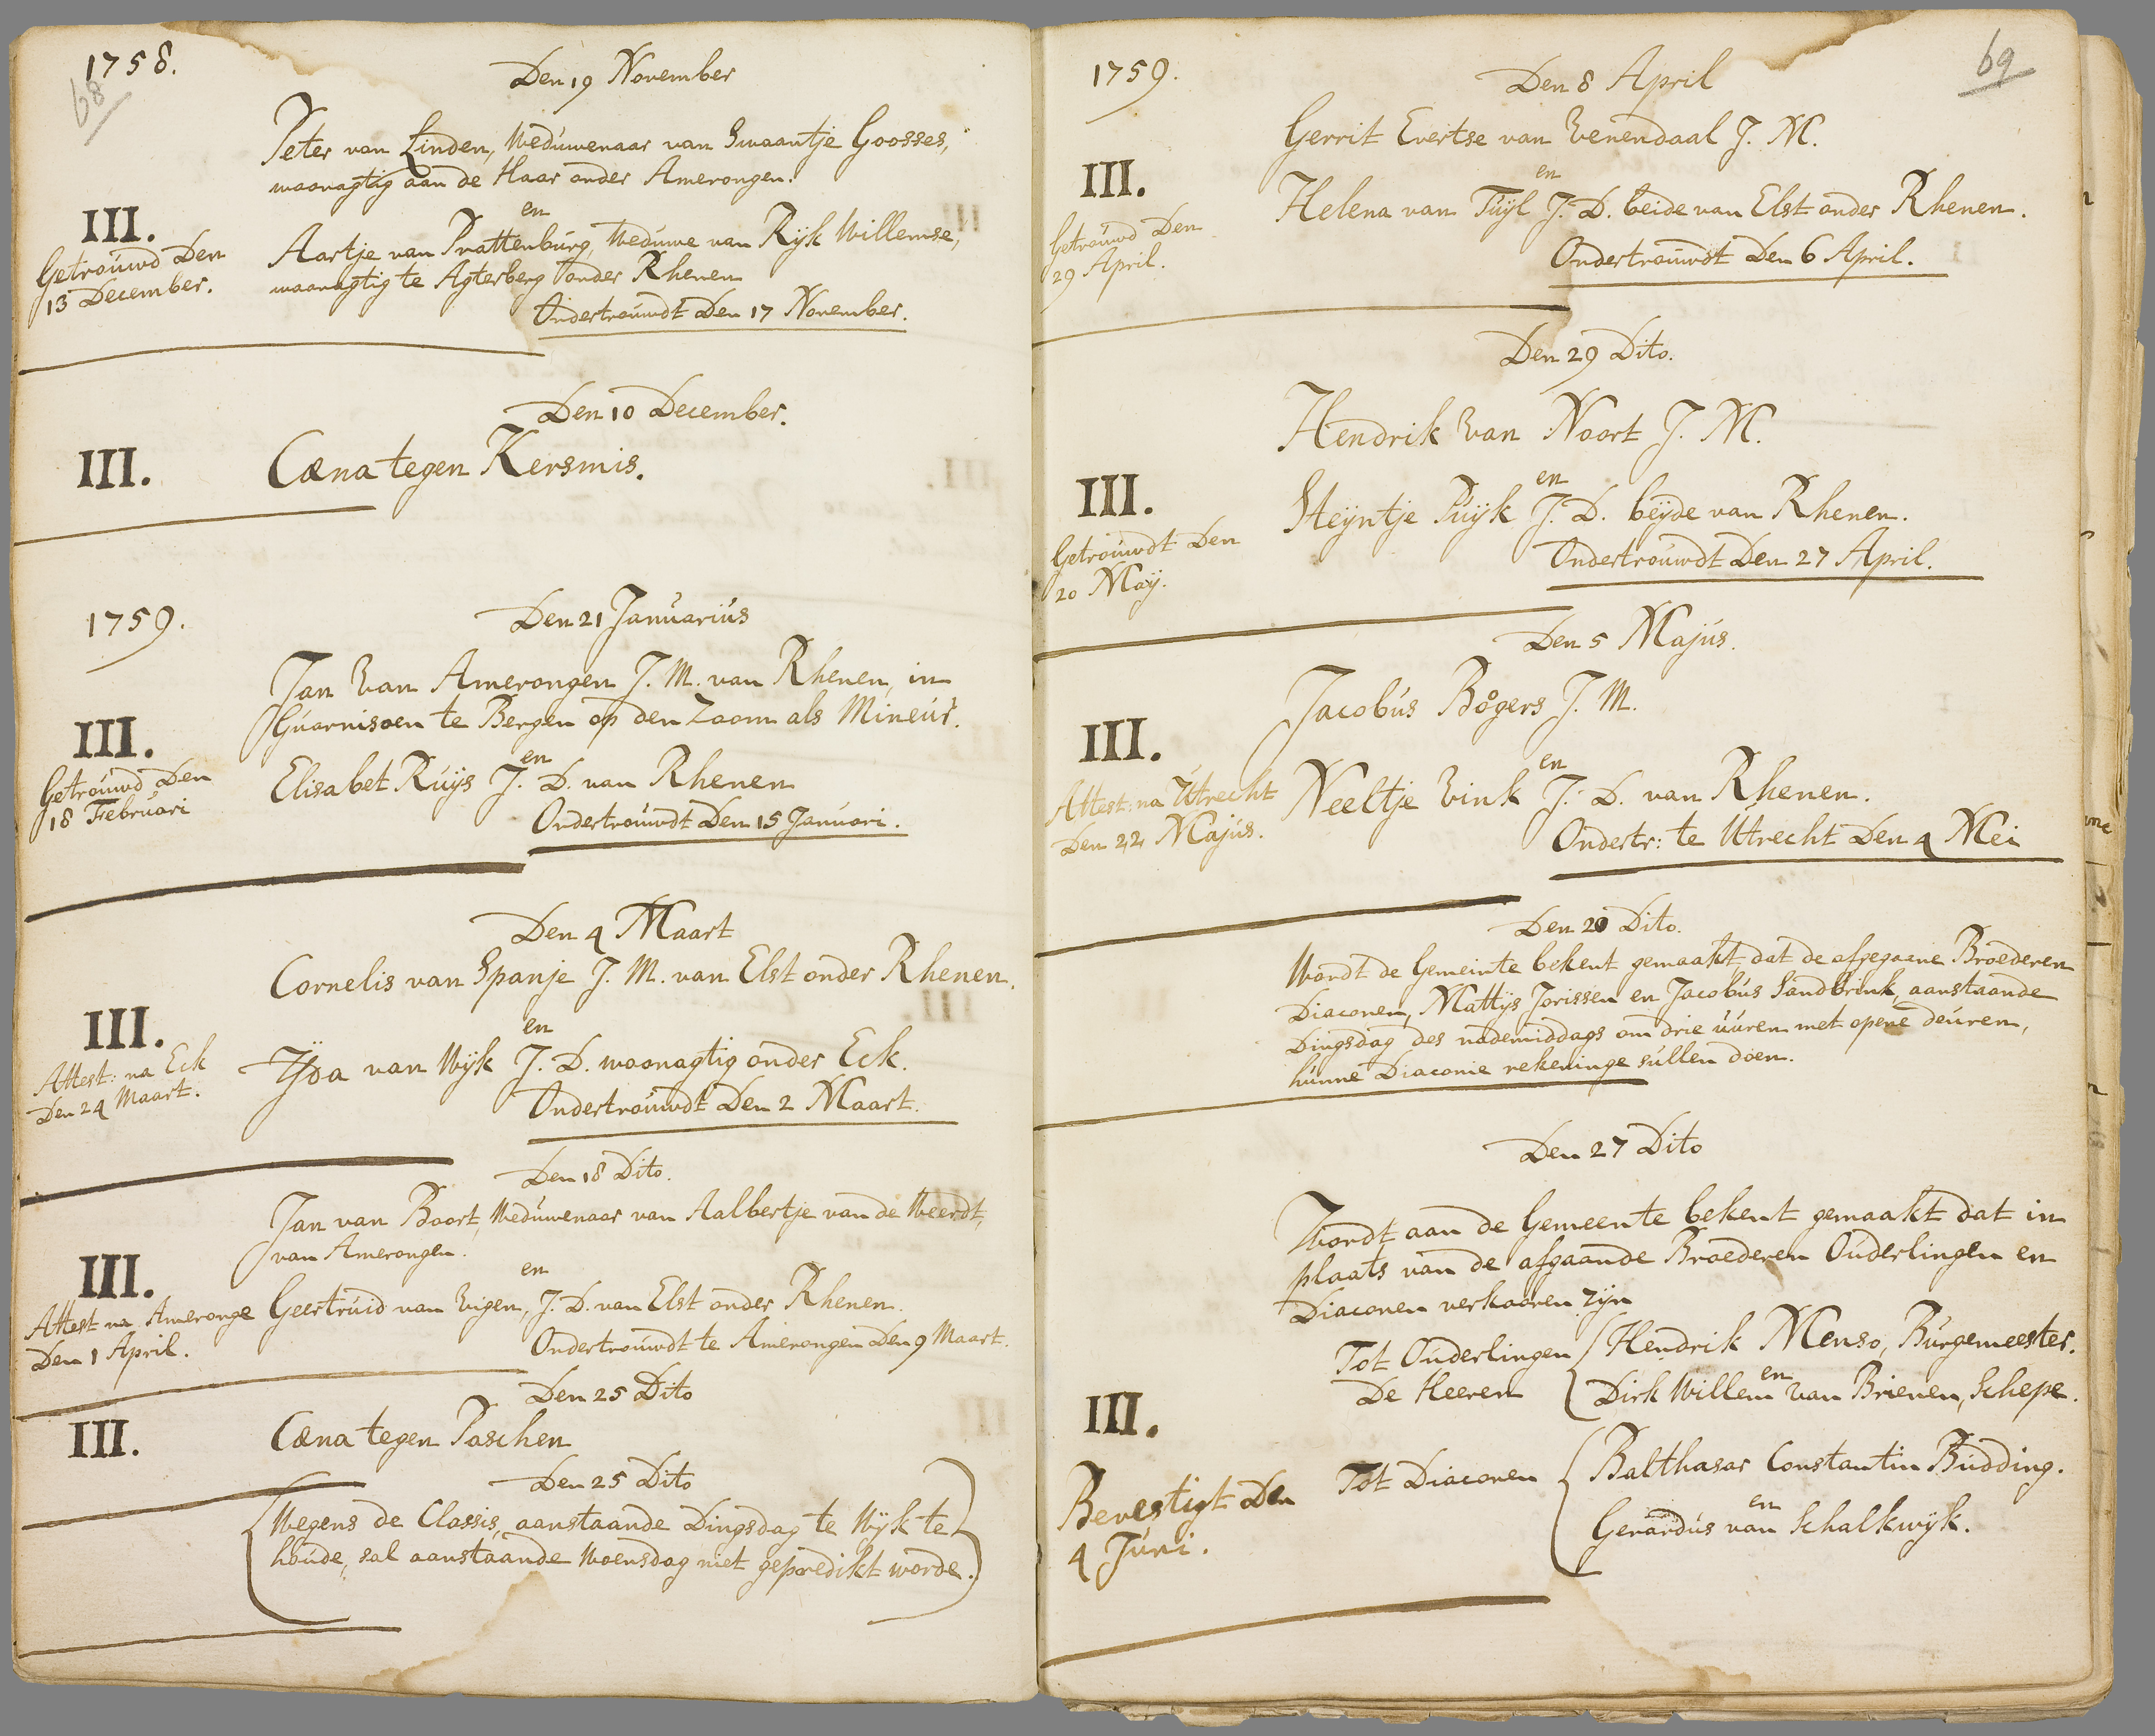 1758.
68
Den 19 November
Peter van Linden, Weduwenaar van Swaantje Goosses,
woonagtig aan de Haar onder Amerongen.
en
III.
Getrouwd Den
13 December.
Aartje van Prattenburg, Weduwe van Ryk Willemse,
woonagtig te Agterberg onder Rhenen
Ondertrouwdt Den 17 November.
Den 10 December.
III.
Cæna tegen Kersmis.
1759.
Den 21 Januarius
Jan Van Amerongen J. M. van Rhenen, in
Guarnisoen te Bergen op den Zoom als Mineur.
III.
en
Getrouwd Den
18 Februari
Elisabet Ruijs J. D. van Rhenen
Ondertrouwdt Den 15 Januari.
Den 4 Maart
Cornelis van Spanje J. M. van Elst onder Rhenen.
III.
en
Attest: na Eck
Den 24 Maart.
Yda van Wyk J. D. woonagtig onder Eck.
Ondertrouwdt Den 2 Maart.
Den 18 Dito.
Jan van Boort, Weduwenaar van Aalbertje van de Weerdt,
van Amerongen.
III.
en
Attest na Ameronge
Den 1 April.
Geertruid van Eigen, J. D. van Elst onder Rhenen.
Ondertrouwdt te Amerongen Den 9 Maart.
Den 25 Dito
III.
Cæna tegen Paschen
Den 25 Dito
Wegens de Classis, aanstaande Dingsdag te Wyk te
houde, sal aanstaande Woensdag niet gepredikt worde.
1759.
69
Den 8 April
Gerrit Evertse van Venendaal J. M.
III.
en
Helena van Tuyl J. D. beide van Elst onder Rhenen.
Getrouwd Den
29 April.
Ondertrouwdt Den 6 April.
Den 29 Dito.
Hendrik Van Noort J. M.
III.
en
Steyntje Puyk J. D. beyde van Rhenen.
Getrouwdt Den
20 May.
Ondertrouwdt Den 27 April.
Den 5 Majus.
Jacobus Bogers J. M.
III.
en
Attest: na Utrecht
Den 22 Majus.
Neeltje Vink J. D. van Rhenen.
Ondertr: te Utrecht Den 4 Mei
Den 20 Dito.
Wordt de Gemeinte bekent gemaakt, dat de afgegaene Broederen
Diaconen, Mattys Jorissen en Jacobus Sandbrink, aanstaande
Dingsdag des nademiddags om drie uuren met opene deuren,
hunne Diaconie rekeninge sullen doen.
Den 27 Dito
Wordt aan de Gemeente bekent gemaakt dat in
plaats van de afgaande Broederen Ouderlingen en
Diaconen verkooren zyn
Tot Ouderlingen
De Heeren
Hendrik Menso, Burgemeester.
en
Dirk Willem van Brienen, Schepe.
III.
Bevestigt Den
4 Juni.
Tot Diaconen
Balthasar Constantin Budding.
en
Gerardus van Schalkwyk.